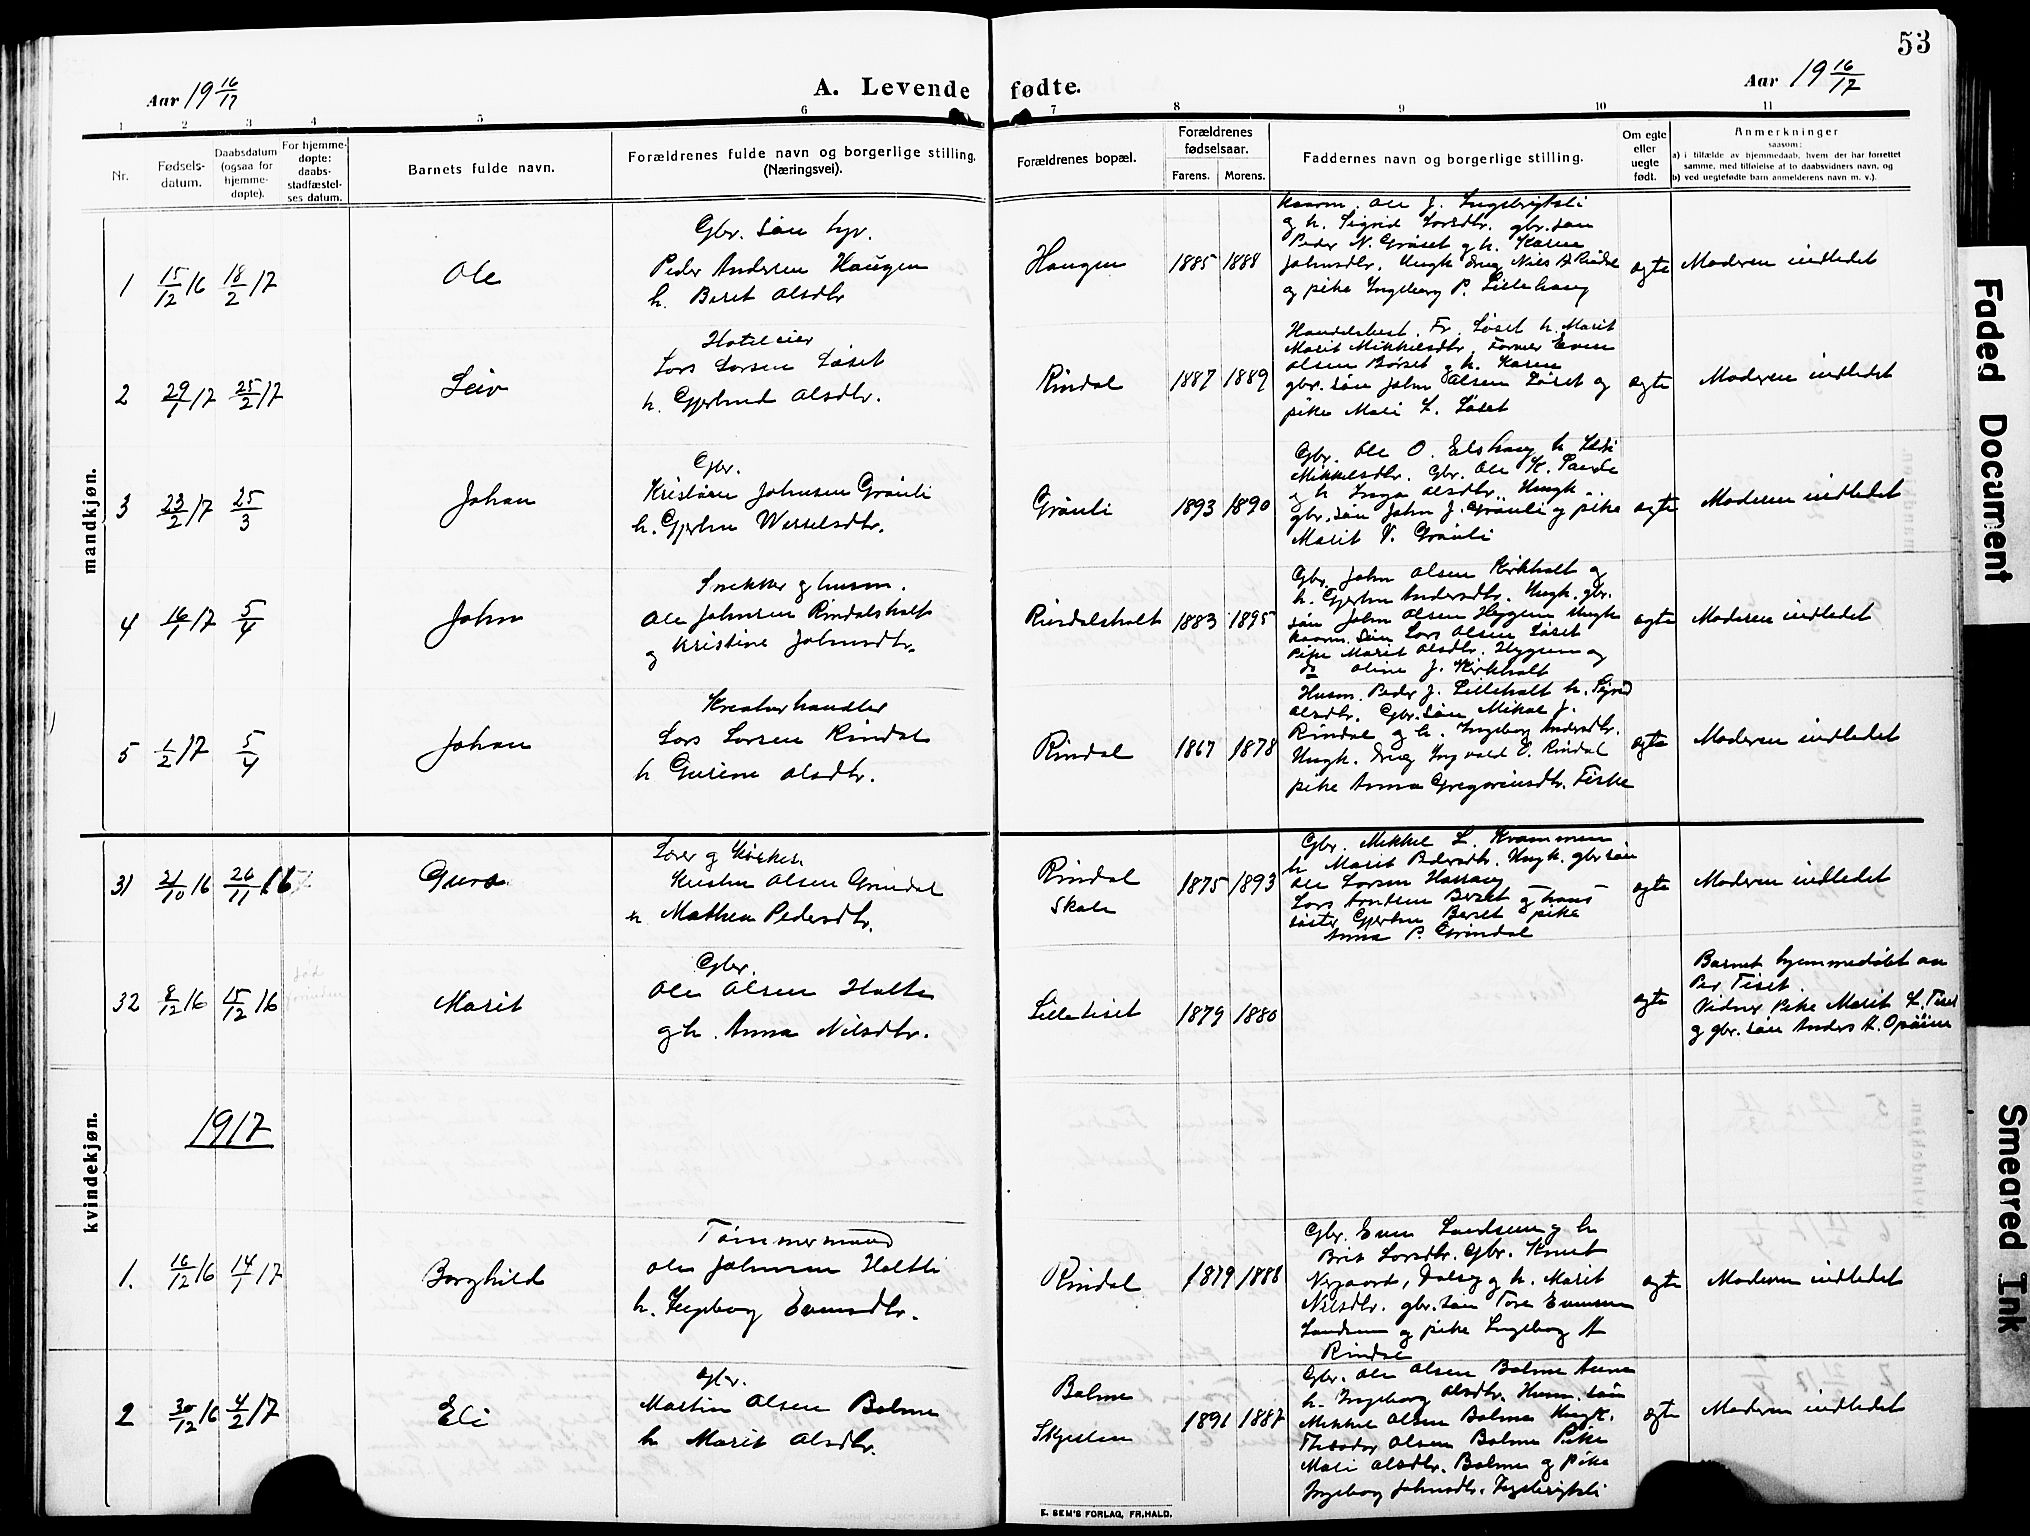 53
Aar 19 16/17
A. Levende fødte.
Aar 19 16/17
1 2 3 4 5 6 7 8 9 10 11
Nr.
Fødsels-
datum.
Daabsdatum
(ogsaa for
hjemme-
døpte).
For hjemme-
døpte:
daabs-
stadfæstel-
ses datum.
Barnets fulde navn.
Forældrenes fulde navn og borgerlige stilling.
(Næringsvei).
Forældrenes bopæl.
Forældrenes
fødselsaar.
Farens. Morens.
Faddernes navn og borgerlige stilling.
Om egte
eller
uegte
født.
Anmerkninger
saasom:
a) i tilfælde av hjemmedaab, hvem der har forrettet
samme, med tilføielse af to daabsvidners navn, og
b) ved uegtefødte barn anmelderens navn m. v.).
mandkjøn.
1 15/12 16 18/2 17 Ole
Gbr. søn
Peder Andersen Haugen
h. Beret Olsdtr
Haugen 1885 1888
Ole J. Ingebrigtsli
og h. Sigrid Larsdtr. gbr. søn
Peder N. Grøset og h. Karen
Johnsdtr. Ungk. Nils
og pike Ingeborg P. Lillehaug
egte Moderen indledet
2 29/1 17 25/2 17 Leiv
Hoteleier
Lars Larsen Løset
h. Gjertrud Olsdtr.
Rindal 1887 1889
Handelsbest. Fr. Løset h. Marit
Marit Mikkelsdtr. Former Even
Olsen Børset og h. Karen
gbr. søn John Olsen Løset og
pike Mali L. Løset
egte Moderen indledet
3 23/2 17 25/3 Johan
Gbr.
Kristian Johnsen Grønli
h. Gjertru Wesselsdtr.
Grønli 1893 1890
Gbr. Ole O. Elshaug h.
Mikkelsdtr. Gbr. Ole K. Sande
og h. Inga Olsdtr. Ungk.
gbr. søn John J. Grønli og pike
Marit V. Grønli
egte Moderen indledet
4 16/1 17 5/4 John
Snekker og husm.
Ole Johnsen Rindalsholt
og Kristine Johnsdtr.
Rindalsholt 1883 1895
Gbr. John Olsen Kirkholt og
h. Gjertru Andersdtr. Ungk. gbr.
søn John Olsen Heggem Ungk
søn Lars Olsen Løset
Pike Marit Olsdtr. Heggem og
do Oline J. Kirkholt
egte Moderen indledet
5 1/2 17 5/4 Johan
Kreaturhandler
Lars Larsen Rindal
h Gurine Olsdtr.
Rindal 1867 1878
Husm. Peder J. Lilleholt h. Sigrid
Olsdtr. Gbr. søn Mikal J.
Rindal og h. Ingeborg Andersdtr.
Ungk. Ingvald O. Rindal
pike Anna Gregoriusdtr. Fiske
egte Moderen indledet
kvindekjøn.
31 21/10 16 26/11 16 Guro
Lærer og Kirkes.
Kristen Olsen Grindal
h Mathea Pedersdtr.
Rindal
Skole
1875 1893
Gbr. Mikkel L. Kvammen
h Marit Pedersdtr. Ungk. gbr søn
Ole Larsen
Lars Arntsen Beret og hans
søster Gjertru Beret pike
Anna P. Grindal
egte Moderen indledet
32 8/12 16 15/12 16 Marit
Gbr.
Ole Olsen Holte
og h. Anna Nilsdtr.
Lilletiset 1879 1880
egte
Barnet hjemmedøbt av
Per Tiset.
Vidner Pike Marit L. Tiset
og gbr. søn Anders A. Opøien
1917
1. 16/12 16 14/1 17 Borghild
Tømmermand
Ole Johnsen Holte
h. Ingeborg Evensdtr.
Rindal 1879 1888
Gbr. Even Landsem og h
Brit Larsdtr. Gbr. Knut
Nygaard, Dalsg og h. Marit
Nilsdtr. gbr. søn Tore Evensen
Landsem og pike Ingeborg A
Rindal
egte Moderen indledet
2 30/12 16 4/2 17 Eli
Gbr.
Martin Olsen Bolme
h Marit Olsdtr.
Bolme
1891 1887
Gbr. Ole Olsen Bolme
h. Ingeborg Olsdtr. Husm. søn
Mikkel Olsen Bolme Ungk.
Theodor Olsen Bolme Pike
Mali Olsdtr. Bolme og Pike
Ingeborg Johnsdtr. Ingebrigtsli
egte Moderen indledet
E. SEM'S FORLAG, FR.HALD.
Faded Document
Smeared Ink